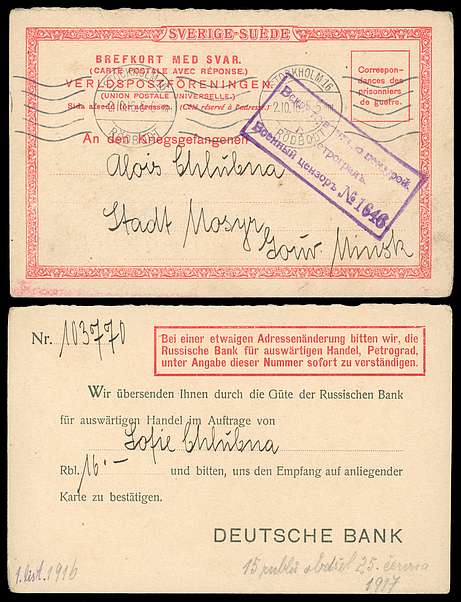 SVERIGE-SUÈDE
BREFKORT MED SVAR.
(CARTE POSTALE AVEC RÉPONSE.)
VERLDSPOSTFÖRENINGEN
(UNION POSTALE UNIVERSELLE.)
Correspon-
dances des
prisonniers
de guerre.
STOCKHOLM 16
2.10.16
RÖDBOUT
An den Kriegsgefangenen
Alois Chlubna
Stadt Mosyr
Gouv Minsk
Военный цензоръ № 1646
Nr. 103770
Bei einer etwaigen Adressenänderung bitten wir, die
Russische Bank für auswärtigen Handel, Petrograd,
unter Angabe dieser Nummer sofort zu verständigen.
Wir übersenden Ihnen durch die Güte der Russischen Bank
für auswärtigen Handel im Auftrage von
Sofie Chlubna
Rbl. 16.- und bitten, uns den Empfang auf anliegender
Karte zu bestätigen.
DEUTSCHE BANK
1. list. 1916
25. června
1917